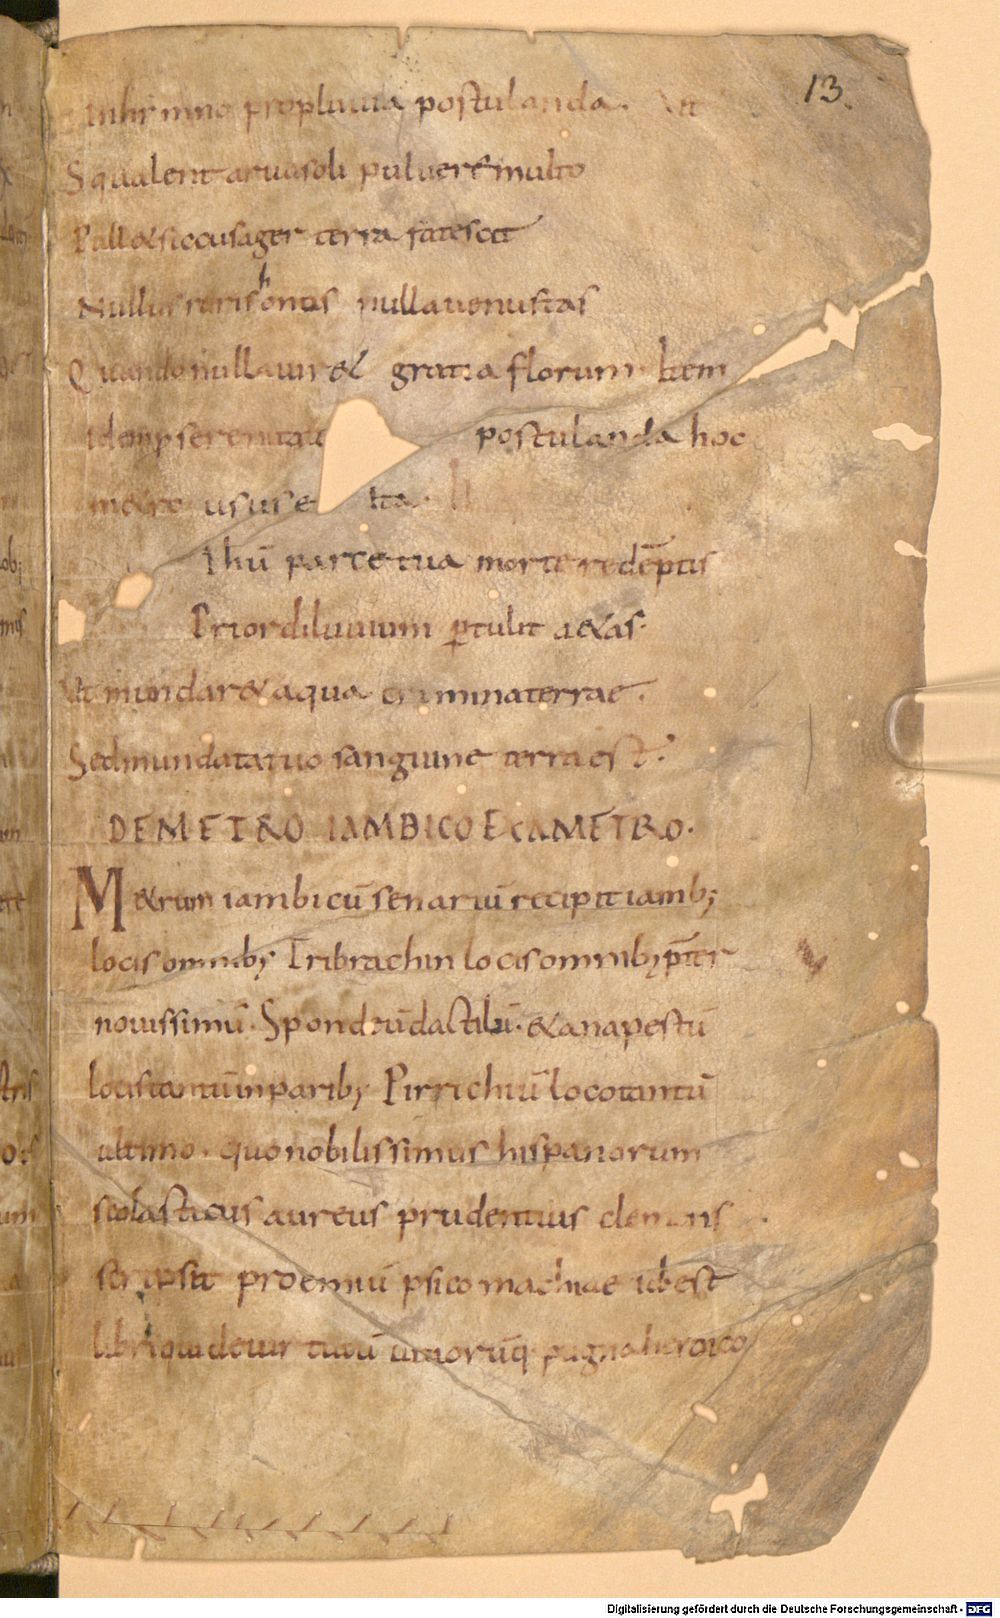 13.
In hymno pro pluvia postulanda.
Squalent arva soli pulvere multo
Pallet siccus ager terra fatescit
Nullus ruris honos nulla venustas
Quando nulla viret gratia florum. Item
idem p serenitate postulanda hoc
metro usus e ita.
Ihū parce tua morte redēptis
Prior diluvium ptulit aetas.
Ut mundaret aqua crimina terrae.
Sed mundata tuo sanguine terra est.
DE METRO IAMBICO EXAMETRO.
Metrum iambicū senariū recipit iamb;
locis omnib; Tribrachin locis omnib; pter
novissimū. Spondeū dactilū. et anapestū
locis tantū inparib; Pirrichiū loco tantū
ultimo. quo nobilissimus hispanorum
scolasticus aureus prudentius clemens
scripsit proemiū psicomachiae id est
libri qui de virtutū vitiorūq. pugna heroico
Digitalisierung gefördert durch die Deutsche Forschungsgemeinschaft - DFG